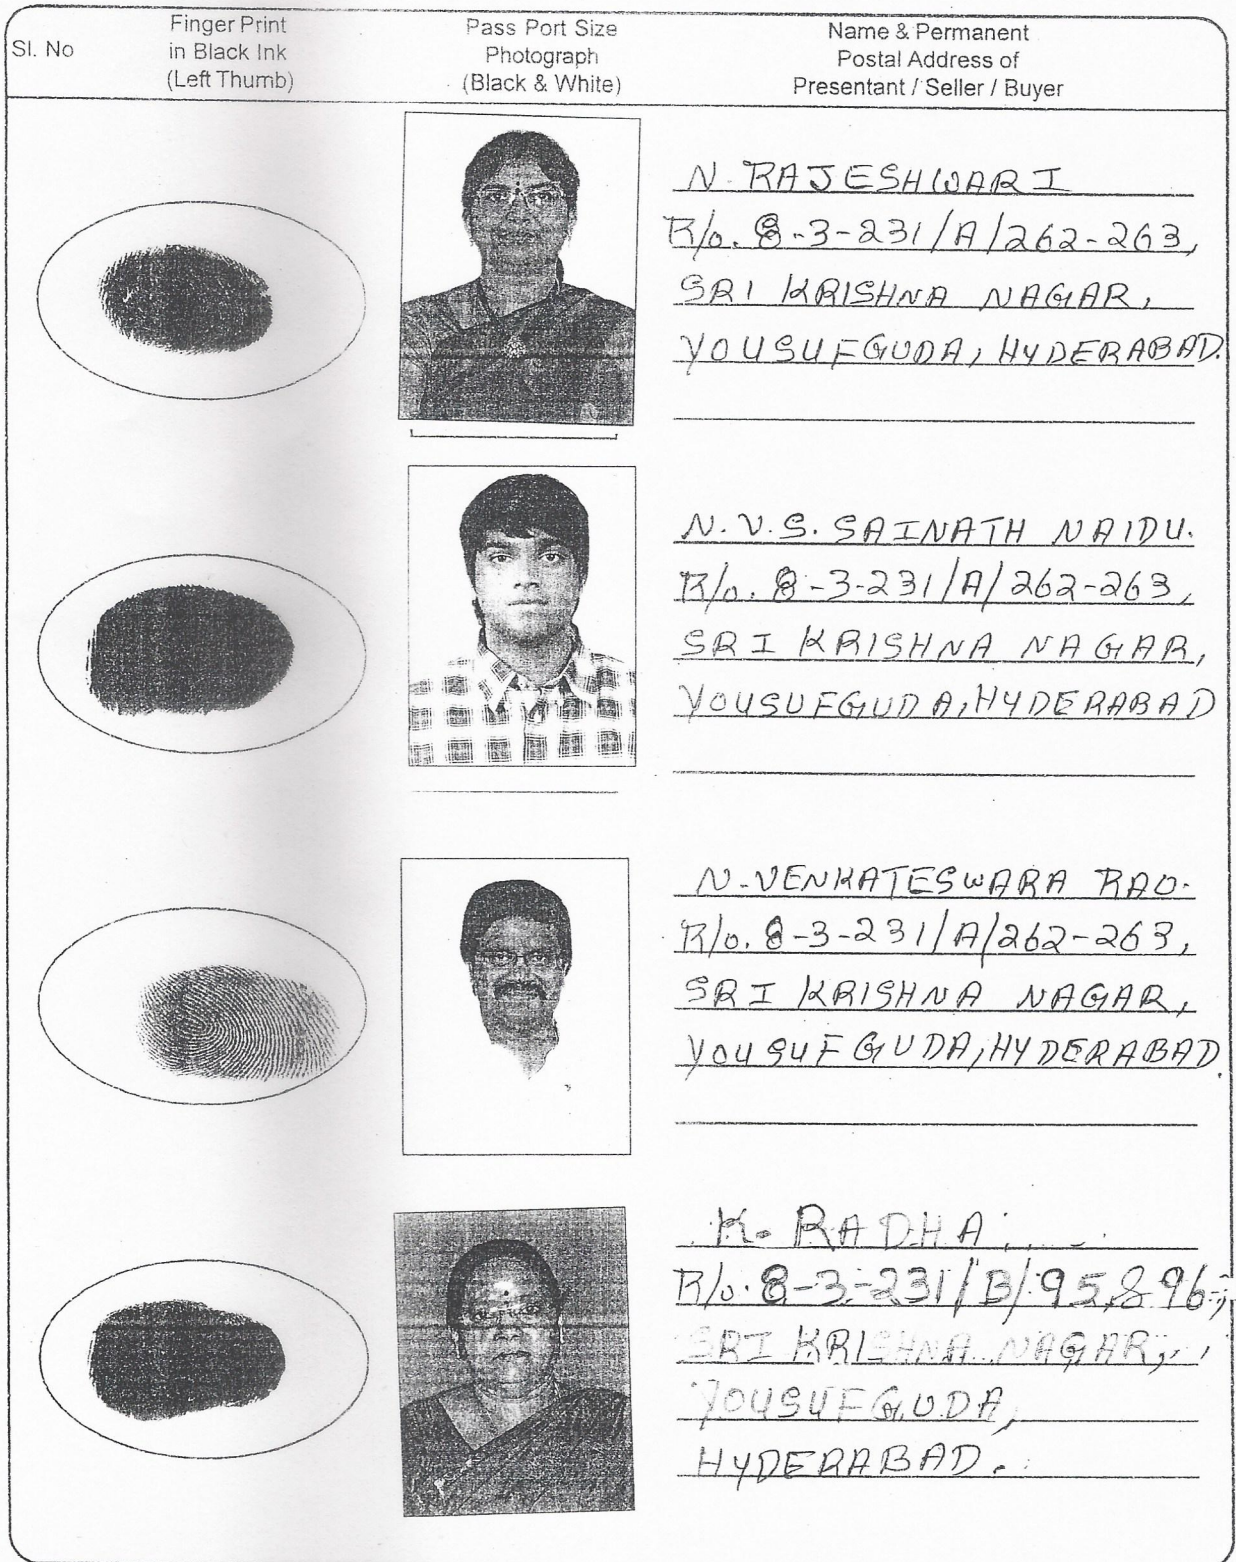 Sl. No
Finger Print
in Black Ink
(Left Thumb)
Pass Port Size
Photograph
(Black & White)
Name & Permanent
Postal Address of
Presentant / Seller / Buyer
N. RAJESHWARI
R/o. 8-3-231/A/262-263,
SRI KRISHNA NAGAR,
YOUSUFGUDA, HYDERABAD.
N.V.S. SAINATH NAIDU.
R/o. 8-3-231/A/262-263,
SRI KRISHNA NAGAR,
YOUSUFGUDA, HYDERABAD
N.VENKATESWARA RAO.
R/o. 8-3-231/A/262-263,
SRI KRISHNA NAGAR,
YOUSUFGUDA, HYDERABAD.
K. RADHA
R/o. 8-3-231/B/95 & 96,
SRI KRISHNA NAGAR,
YOUSUFGUDA,
HYDERABAD.